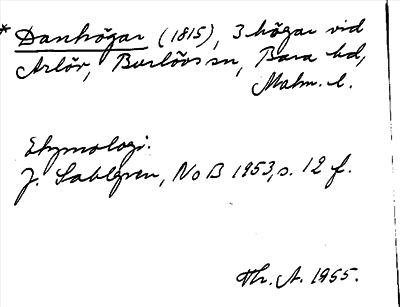 * Danhögar (1815), 3 högar vid
Arlöv, Burlövs sn, Bara hd,
Malm. l.
Etymologi.
J. Sahlgren, NoB 1953, s. 12 f.
Th. A. 1955.